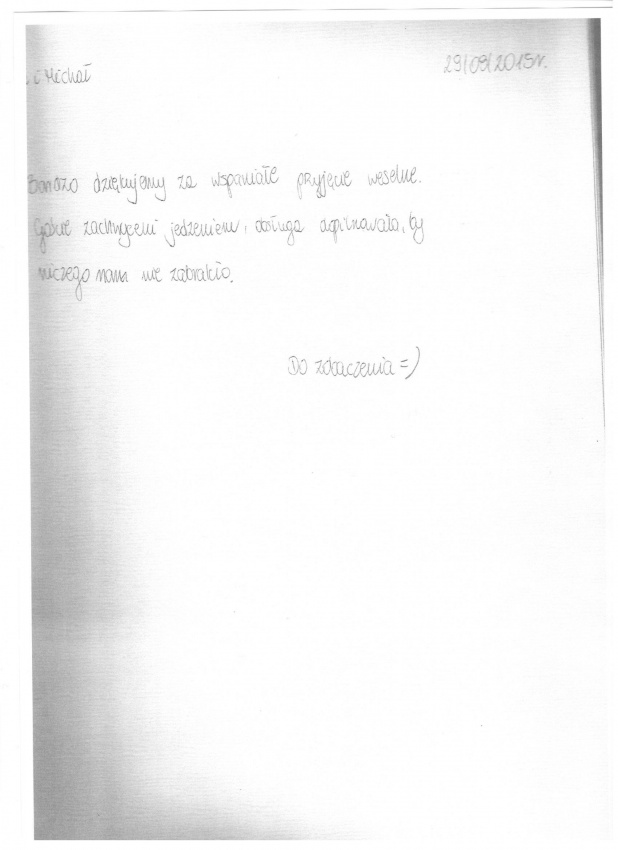 i Michał
29/09/2015r.
Bardzo dziękujemy za wspaniałe przyjęcie weselne.
Goście zachwyceni jedzeniem, obsługa dopilnowała, by
niczego nam nie zabrakło.
Do zobaczenia =)